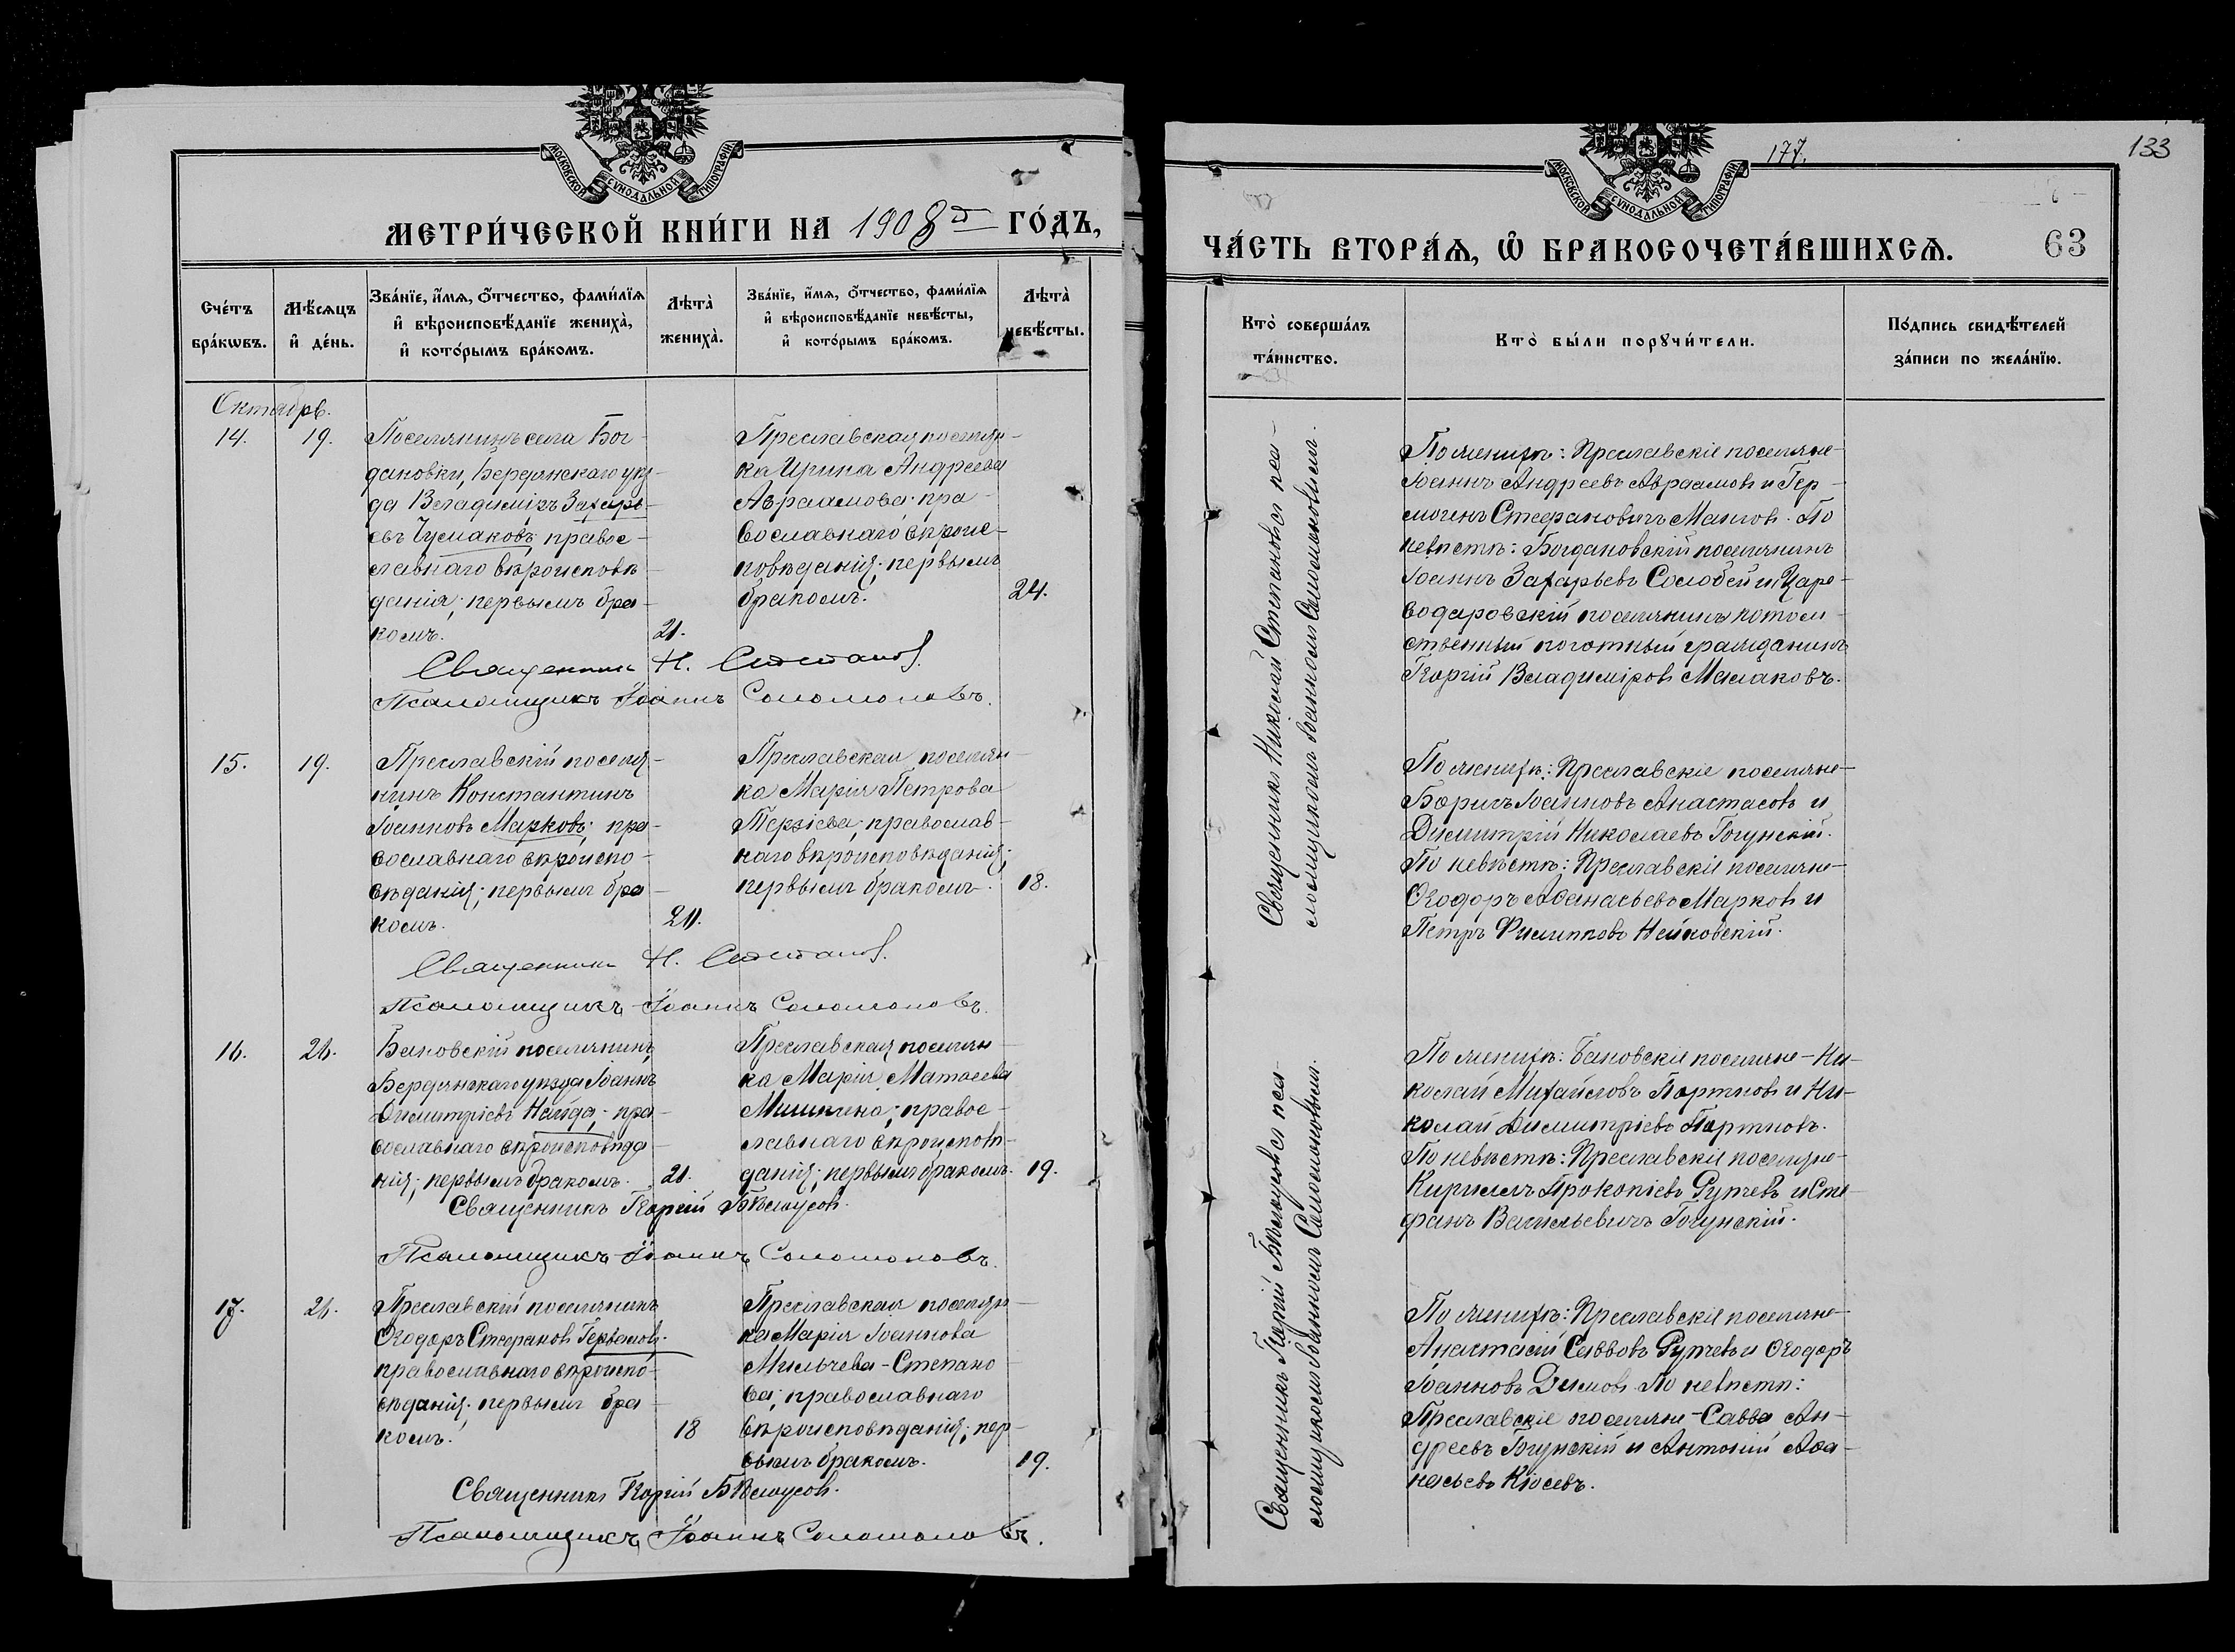 МОСКОВСКОЙ СѴНОДАЛЬНОЙ ТИПОГРАФІИ
МЕТРИ́ЧЕСКОЙ КНИ́ГИ НА 1908й ГО́ДЪ,
Сче́тъ бра́кѡвъ.
Мѣ́сяцъ и҆ де́нь.
Зва́нїе, и҆́мѧ, ѻ҆́тчество, фами́лїѧ
и҆ вѣроисповѣ́данїе жениха̀,
и҆ кото́рымъ бра́комъ.
Лѣта̀ жениха̀.
Зва́нїе, и҆́мѧ, ѻ҆́тчество, фами́лїѧ
и҆ вѣроисповѣ́данїе невѣ́сты,
и҆ кото́рымъ бра́комъ.
Лѣта̀ невѣ́сты.
Октябрь.
14.
19.
Поселянинъ села Бог-
дановки, Бердянскаго уѣз-
да Владиміръ Захарь-
евъ Чумаковъ; правос-
лавнаго вѣроисповѣ-
данія; первымъ бра-
комъ.
21.
Преславская поселян-
ка Ирина Андреева
Авраамова; пра-
вославнаго вѣроис-
повѣданія; первымъ
бракомъ.
24.
Священникъ Н. Степановъ.
Псаломщикъ Іоаннъ Соломоновъ.
15.
19.
Преславскій поселя-
нинъ Константинъ
Іоанновъ Марковъ; пра-
вославнаго вѣроиспо-
вѣданія; первымъ бра-
комъ.
20.
Преславская поселян-
ка Марія Петрова
Терзіева; православ-
наго вѣроисповѣданія;
первымъ бракомъ.
18.
Священникъ Н. Степановъ.
Псаломщикъ Іоаннъ Соломоновъ.
16.
26.
Бановскій поселянинъ,
Бердянскаго уѣзда Іоаннъ
Димитріевъ Найда; пра-
вославнаго вѣроисповѣда-
нія; первымъ бракомъ.
21.
Преславская поселян-
ка Марія Матѳеева
Мишкина; правос-
лавнаго вѣроисповѣ-
данія; первымъ бракомъ.
19.
Священникъ Георгій Бѣлоусовъ.
Псаломщикъ Іоаннъ Соломоновъ.
17.
26.
Преславскій поселянинъ
Ѳеодоръ Стефановъ
православнаго вѣроиспо-
вѣданія; первымъ бра-
комъ.
18
Преславская поселян-
ка Марія Іоаннова
Мильчева-Степано-
ва; православнаго
вѣроисповѣданія; пер-
вымъ бракомъ.
19.
Священникъ Георгій Бѣлоусовъ.
Псаломщикъ Іоаннъ Соломоновъ.
177.
133
МОСКОВСКОЙ СѴНОДАЛЬНОЙ ТИПОГРАФІИ
ЧА́СТЬ ВТОРА́Ѧ, Ѡ҆ БРАКОСОЧЕТА́ВШИХСѦ.
63
Кто̀ соверша́лъ
та́инство.
Кто̀ бы́ли порꙋчи́тели.
По́дпись свидѣ́телей
за́писи по жела́нїю.
Священникъ Николай Степановъ съ пса-
ломщикомъ Іоанномъ Соломоновымъ.
По женихѣ: Преславскіе поселяне-
Іоаннъ Андреевъ Авраамовъ и Гер-
могенъ Стефановичъ Манжов. По
невѣстѣ: Богдановскій поселянинъ
Іоаннъ Захарьевъ Соловей и Царе-
водаровскій поселянинъ потом-
ственный почотный гражданинъ
Георгій Владиміровъ Малаковъ.
По женихѣ: Преславскіе поселяне-
Борисъ Іоанновъ Анастасовъ и
Димитрій Николаевъ Гогунскій.
По невѣстѣ: Преславскіе поселяне-
Ѳеодоръ Аѳанасьевъ Марковъ и
Петръ Филипповъ Нейковскій.
Священникъ Георгій Бѣлоусовъ съ пса-
ломщикомъ Іоанномъ Соломоновымъ.
По женихѣ: Бановскіе поселяне-Ни-
колай Михайловъ Портновъ и Ни-
колай Димитріевъ Портновъ.
По невѣстѣ: Преславскіе поселяне-
Кириллъ Прокопіевъ Рупчевъ и Сте-
фанъ Васильевичъ Гогунскій.
По женихѣ: Преславскіе поселяне-
Анастасій Савовъ Рупчевъ и Ѳеодоръ
Іоанновъ Димовъ. По невѣстѣ:
Преславскіе поселяне-Савва Ан-
дреевъ Гогунскій и Антоній Аѳа-
насьевъ Кюсевъ.